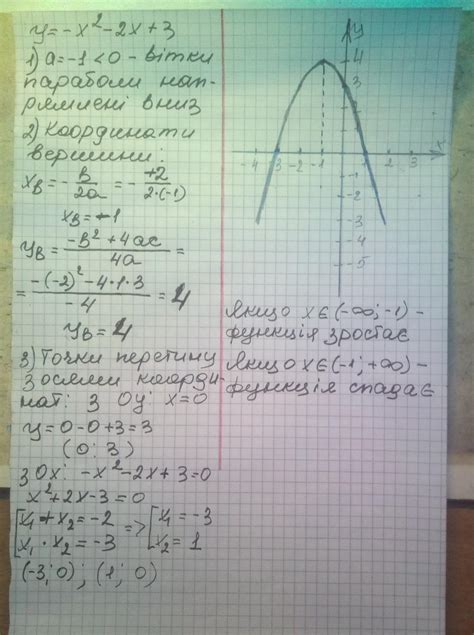 y=-x²-2x+3
1) a=-1<0 - вітки
параболи нап-
рямлені вниз
2) Координати
вершини:
xв = - в/2а = - +2/2·(-1)
xв = -1
yв = -в²+4ас/4а =
= -(-2)²-4·1·3/-4 = 4
yв = 4
3) Точки перетину
з осями коорди-
нат: з Oy: x=0
y=0-0+3=3
(0; 3)
з Ox: -x²-2x+3=0
x²+2x-3=0
[x₁+x₂=-2 => [x₁=-3
x₁·x₂=-3 x₂=1
(-3; 0); (1; 0)
y
4
3
2
1
-4 -3 -2 -1 1 2 3 x
-1
-2
-3
-4
-5
Якщо x∈(-∞; -1) -
функція зростає
Якщо x∈(-1; +∞) -
функція спадає